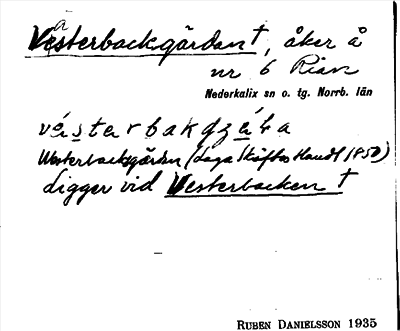 Västerbackgärdan †, åker å
nr 6 Rian
Nederkalix sn o. tg. Norrb. län
vástarbakgzába
Westerbackgärden (Laga Skiftes Handl 1850)
Ligger vid Vesterbacken †
RUBEN DANIELSSON 1935